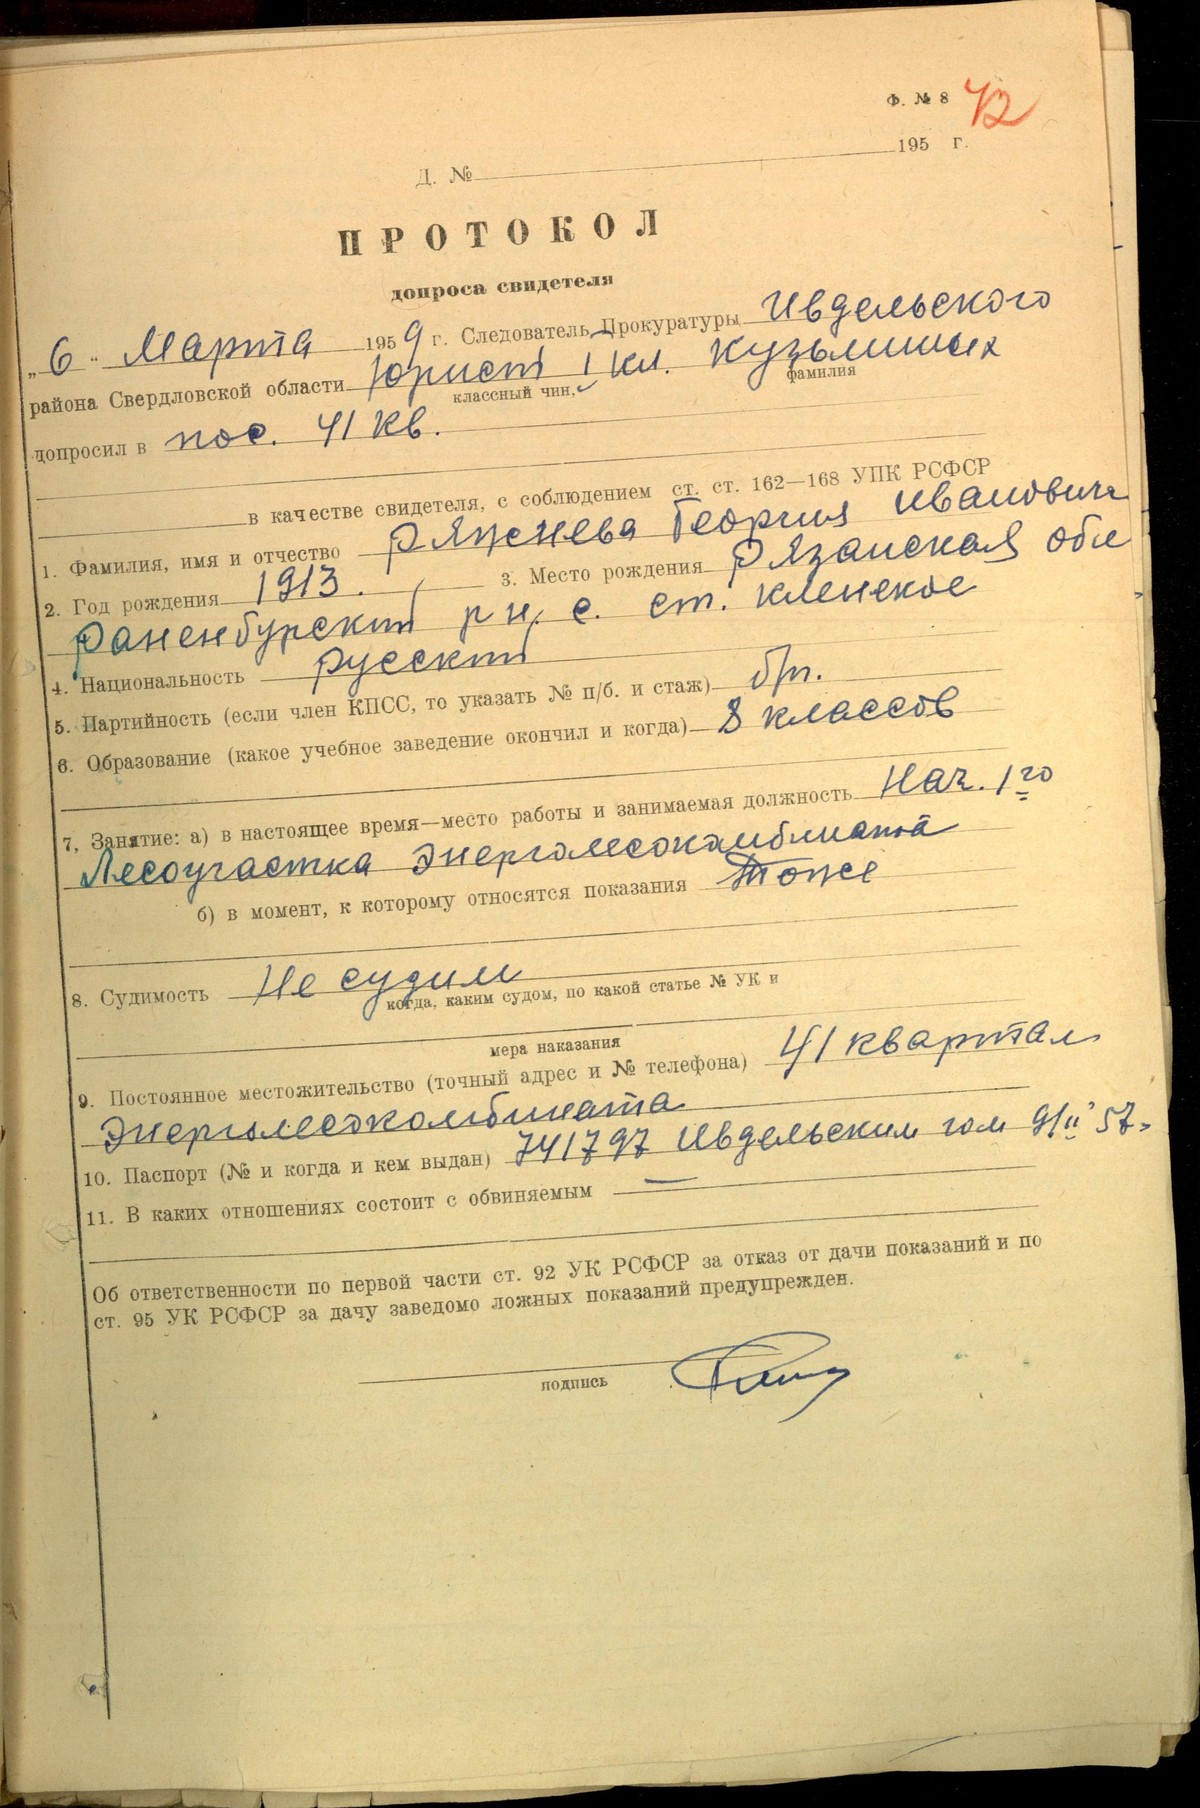 Ф. № 8 42
Д. № 195 г.
ПРОТОКОЛ
допроса свидетеля
„ 6 " Марта 1959 г. Следователь Прокуратуры Ивдельского
района Свердловской области Юрист 1 кл. Кузьминых
классный чин, фамилия
допросил в пос. 41 кв.
в качестве свидетеля, с соблюдением ст. ст. 162—168 УПК РСФСР
1. Фамилия, имя и отчество Ряжнева Георгия Ивановича
2. Год рождения 1913. 3. Место рождения Рязанская обл
Раненбургский рн, с. ст. Кленское
4. Национальность русский
5. Партийность (если член КПСС, то указать № п/б. и стаж) б/п.
6. Образование (какое учебное заведение окончил и когда) 8 классов
7, Занятие: а) в настоящее время—место работы и занимаемая должность Нач. 1го
Лесоучастка Энерголесокомбината
б) в момент, к которому относятся показания Тоже
8. Судимость Не судим
когда, каким судом, по какой статье № УК и
мера наказания
9. Постоянное местожительство (точный адрес и № телефона) 41 квартал
Энерголесокомбината
10. Паспорт (№ и когда и кем выдан) 741797 Ивдельским гом 9/II 57г
11. В каких отношениях состоит с обвиняемым —
Об ответственности по первой части ст. 92 УК РСФСР за отказ от дачи показаний и по
ст. 95 УК РСФСР за дачу заведомо ложных показаний предупрежден.
подпись